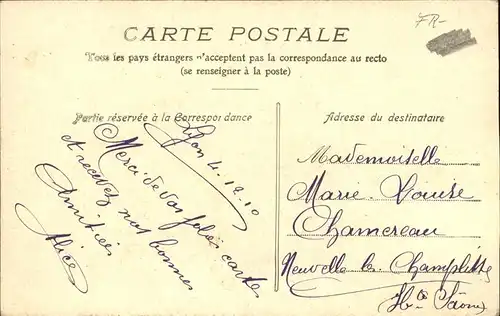 FR-
CARTE POSTALE
Tous les pays étrangers n'acceptent pas la correspondance au recto
(se renseigner à la poste)
Partie réservée à la Correspondance
Adresse du destinataire
Lyon 4.12.10
Merci de vos jolies cartes
et recevez nos bonnes
Amitiés
Alice
Mademoiselle
Marie Louise
Chamereau
Neuvelle les Champlitte
Hte Saone